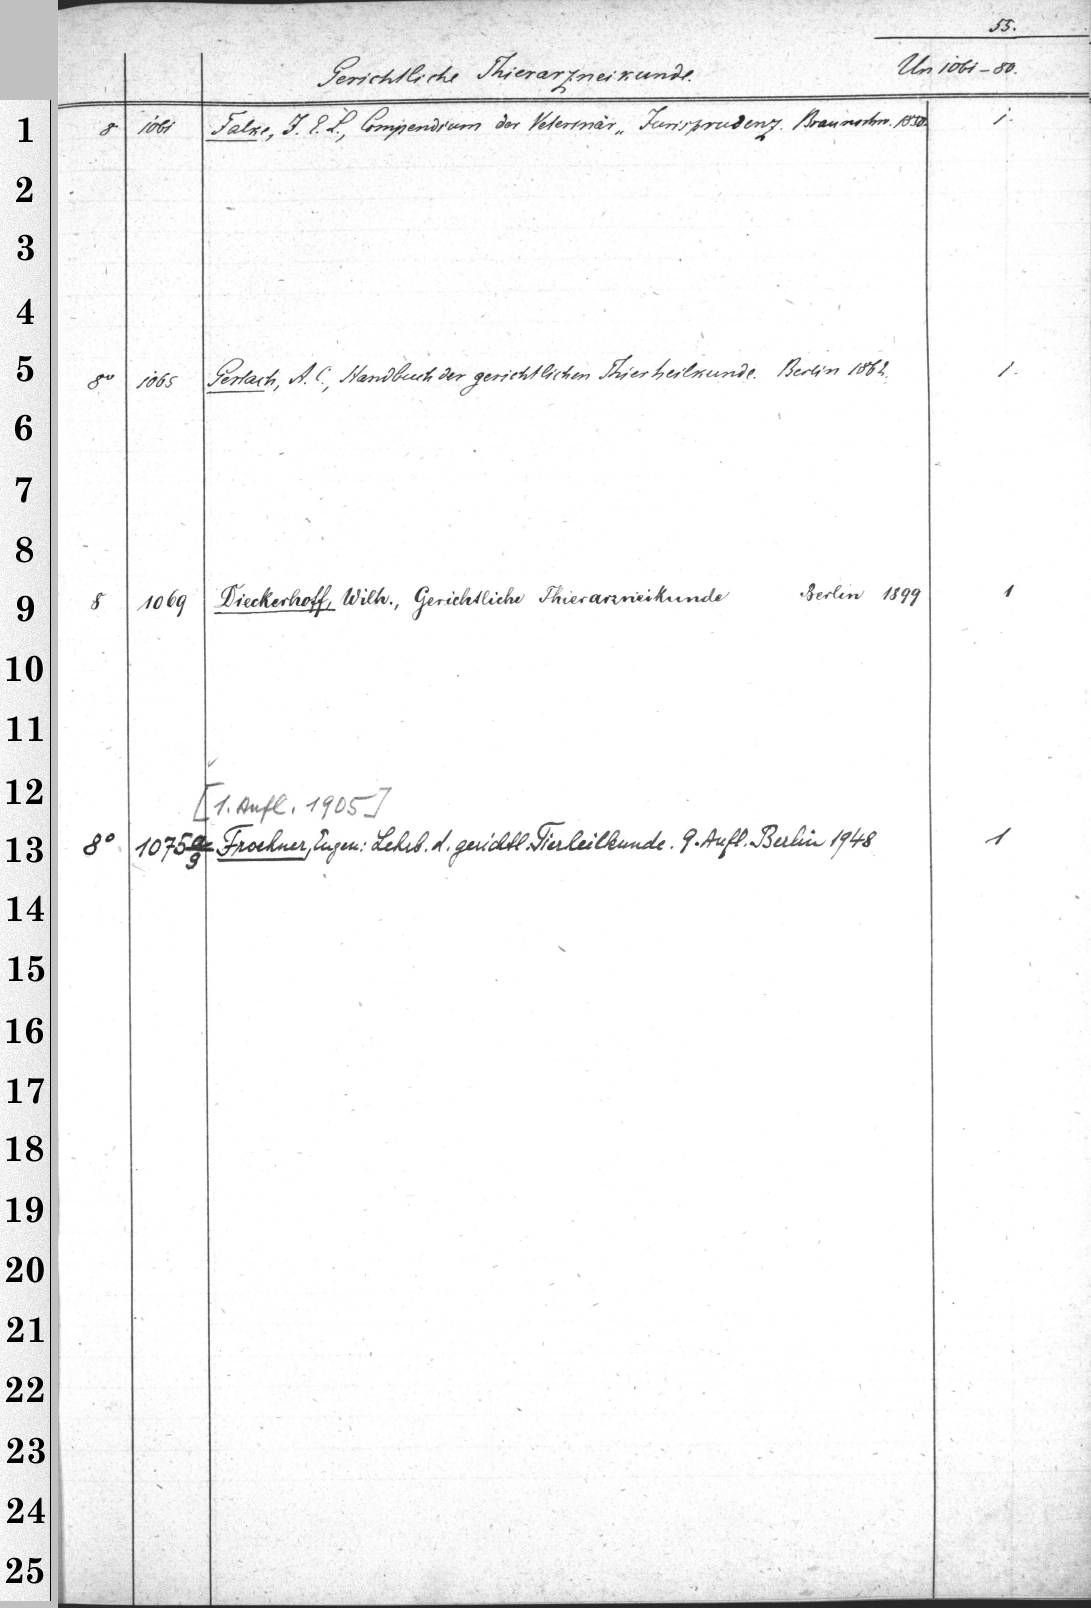 55.
Gerichtliche Thierarzneikunde. Un 1061-80.
1 8 1061 Falke, J. E. L., Compendium der Veterinär„ Jurisprudenz. Braunschw. 1850. 1.
2
3
4
5 8° 1065 Gerlach, A. C., Handbuch der gerichtlichen Thierheilkunde. Berlin 1862. 1.
6
7
8
9 8 1069 Dieckerhoff, Wilh., Gerichtliche Thierarzneikunde Berlin 1899 1
10
11
12 [1. Aufl. 1905]
13 8° 1075 a/9 Froehner, Eugen: Lehrb. d. gerichtl. Tierheilkunde. 9. Aufl. Berlin 1948 1
14
15
16
17
18
19
20
21
22
23
24
25